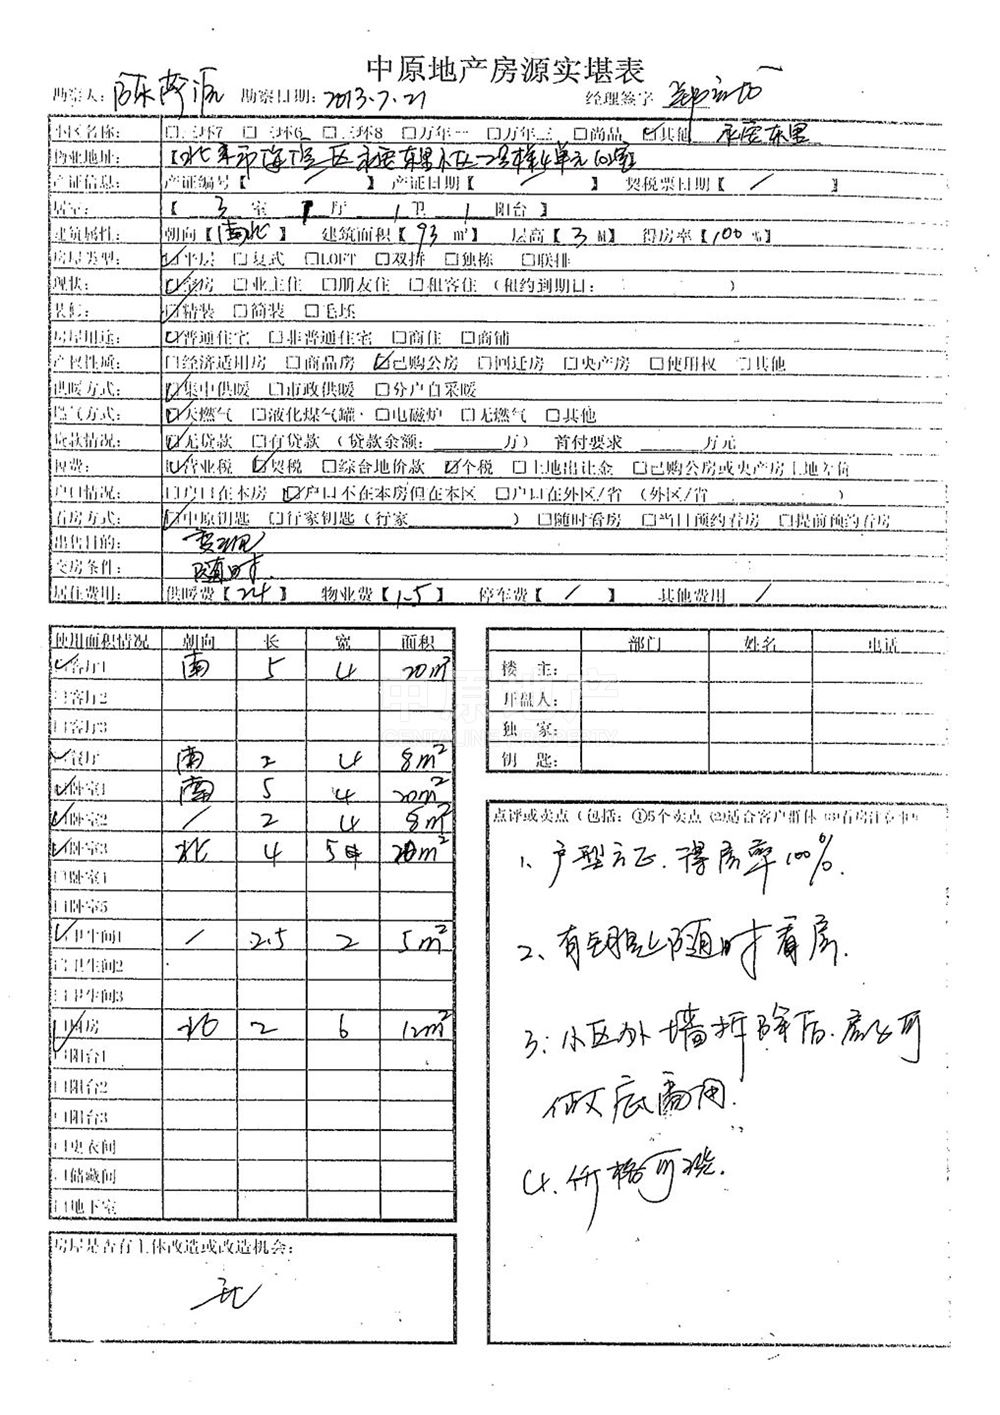 中原地产房源实堪表
勘察人: 勘察日期: 2013.7.21 经理签字
小区名称: □三环7 □三环6 □三环8 □万年一 □万年三 □尚品 ☑其他 永定东里
物业地址: 【北京市海淀区永定东里小区
产证信息: 产证编号【 / 】 产证日期【 / 】 契税票日期【 / 】
居室: 【 3 室 1 厅 1 卫 1 阳台 】
建筑属性: 朝向【南北】 建筑面积【93 m²】 层高【3 M】 得房率【100 %】
房屋类型: ☑平层 □复式 □LOFT □双拼 □独栋 □联排
现状: ☑空房 □业主住 □朋友住 □租客住 (租约到期日: )
装修: ☑精装 □简装 □毛坯
房屋用途: ☑普通住宅 □非普通住宅 □商住 □商铺
产权性质: □经济适用房 □商品房 ☑已购公房 □回迁房 □央产房 □使用权 □其他
供暖方式: ☑集中供暖 □市政供暖 □分户自采暖
燃气方式: ☑天燃气 □液化煤气罐 □电磁炉 □无燃气 □其他
贷款情况: ☑无贷款 □有贷款 (贷款余额: 万) 首付要求 万元
税费: ☑营业税 ☑契税 □综合地价款 ☑个税 □土地出让金 □已购公房或央产房土地差价
户口情况: □户口在本房 ☑户口不在本房但在本区 □户口在外区/省 (外区/省 )
看房方式: ☑中原钥匙 □行家钥匙 (行家 ) □随时看房 □当日预约看房 □提前预约看房
出售目的: 变现
交房条件: 随时
居住费用: 供暖费【24】 物业费【1.5】 停车费【 / 】 其他费用 /
使用面积情况 朝向 长 宽 面积
☑客厅1 南 5 4 20m²
□客厅2
□客厅3
☑餐厅 南 2 4 8m²
☑卧室1 南 5 4 20m²
☑卧室2 / 2 4 8m²
☑卧室3 北 4 5 20m²
□卧室4
□卧室5
☑卫生间1 / 2.5 2 5m²
□卫生间2
□卫生间3
☑厨房 北 2 6 12m²
□阳台1
□阳台2
□阳台3
□更衣间
□储藏间
□地下室
房屋是否有主体改造或改造机会:
无
部门 姓名 电话
楼 主:
开盘人:
独 家:
钥 匙:
中原地产
CENTALINE PROPERTY
点评或卖点 (包括: ①5个卖点 ②适合客户群体 ③看房注意事项
1、户型方正.得房率100%.
2、有钥匙随时看房.
3: 小区外墙拆除后.房子可
做底商用.
4. 价格可观.